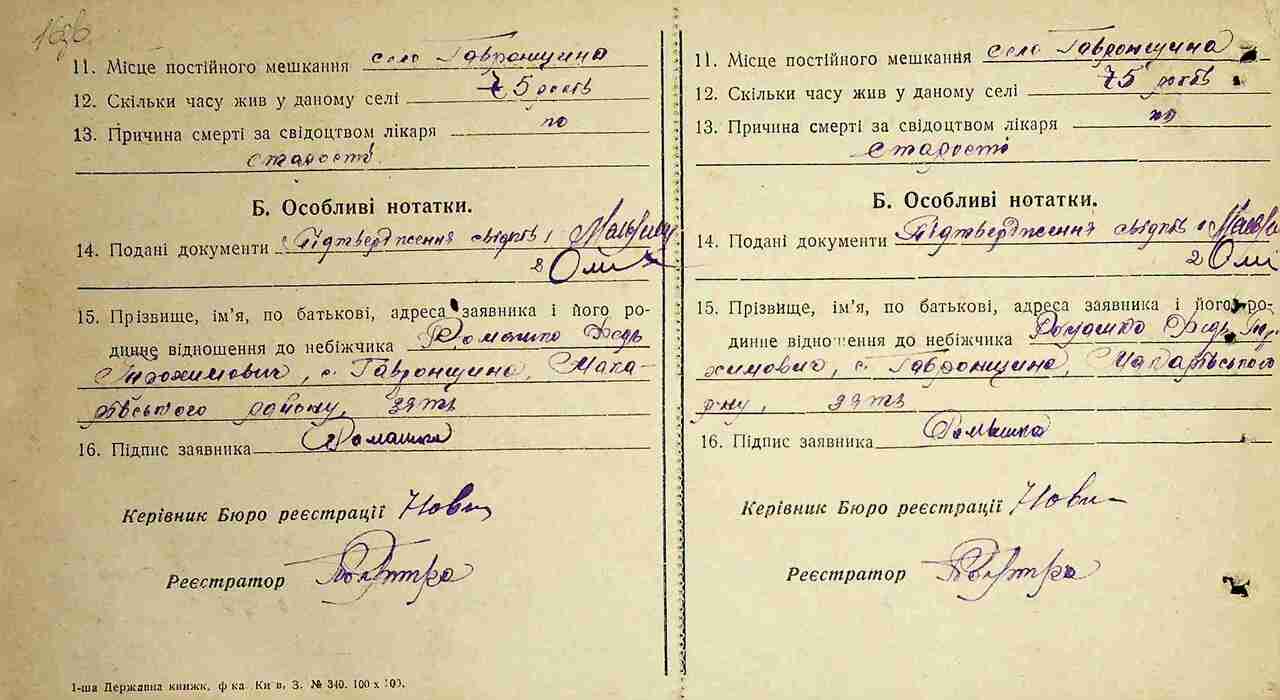 11. Місце постійного мешкання село Гавронщина
12. Скільки часу жив у даному селі 75 років
13. Причина смерті за свідоцтвом лікаря по
старості
Б. Особливі нотатки.
14. Подані документи Підтвердження свідків
2
15. Прізвище, ім'я, по батькові, адреса заявника і його ро-
динне відношення до небіжчика Ромашко Федь
Трохимович, с. Гавронщина, Мака-
рівського району, зять
16. Підпис заявника Ромашко
Керівник Бюро реєстрації Нови
Реєстратор
1-ша Державна книжк. ф-ка Київ, З. № 340. 100 х 100.
11. Місце постійного мешкання село Гавронщина
12. Скільки часу жив у даному селі 75 років
13. Причина смерті за свідоцтвом лікаря по
старості
Б. Особливі нотатки.
14. Подані документи Підтвердження свідків
2
15. Прізвище, ім'я, по батькові, адреса заявника і його ро-
динне відношення до небіжчика Ромашко Федь Тро
химович, с. Гавронщина, Макарівського
р-ну, зять
16. Підпис заявника Ромашко
Керівник Бюро реєстрації Нови
Реєстратор